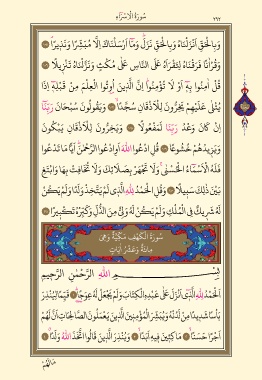 ٢٩٢
سُورَةُ الْاِسْرَاءِ
وَبِالْحَقِّ اَنْزَلْنَاهُ وَبِالْحَقِّ نَزَلَ وَمَٓا اَرْسَلْنَاكَ اِلَّا مُبَشِّرًا وَنَذٖيرًا
وَقُرْاٰنًا فَرَقْنَاهُ لِتَقْرَاَهُ عَلَى النَّاسِ عَلٰى مُكْثٍ وَنَزَّلْنَاهُ تَنْزٖيلًا
قُلْ اٰمِنُوا بِهٖٓ اَوْ لَا تُؤْمِنُوا اِنَّ الَّذٖينَ اُوتُوا الْعِلْمَ مِنْ قَبْلِهٖٓ اِذَا
يُتْلٰى عَلَيْهِمْ يَخِرُّونَ لِلْاَذْقَانِ سُجَّدًا وَيَقُولُونَ سُبْحَانَ رَبِّنَٓا
اِنْ كَانَ وَعْدُ رَبِّنَا لَمَفْعُولًا وَيَخِرُّونَ لِلْاَذْقَانِ يَبْكُونَ
وَيَزٖيدُهُمْ خُشُوعًا قُلِ ادْعُوا اللّٰهَ اَوِ ادْعُوا الرَّحْمٰنَ اَيًّا مَا تَدْعُوا
فَلَهُ الْاَسْمَٓاءُ الْحُسْنٰى وَلَا تَجْهَرْ بِصَلَاتِكَ وَلَا تُخَافِتْ بِهَا وَابْتَغِ
بَيْنَ ذٰلِكَ سَبٖيلًا وَقُلِ الْحَمْدُ لِلّٰهِ الَّذٖي لَمْ يَتَّخِذْ وَلَدًا وَلَمْ يَكُنْ
لَهُ شَرٖيكٌ فِي الْمُلْكِ وَلَمْ يَكُنْ لَهُ وَلِيٌّ مِنَ الذُّلِّ وَكَبِّرْهُ تَكْبٖيرًا
سُورَةُ الْكَهْفِ مَكِّيَّةٌ وَهِيَ
مِائَةٌ وَعَشْرُ اٰيَاتٍ
بِسْمِ اللّٰهِ الرَّحْمٰنِ الرَّحٖيمِ
اَلْحَمْدُ لِلّٰهِ الَّذٖٓي اَنْزَلَ عَلٰى عَبْدِهِ الْكِتَابَ وَلَمْ يَجْعَلْ لَهُ عِوَجًا قَيِّمًا لِيُنْذِرَ
بَاْسًا شَدٖيدًا مِنْ لَدُنْهُ وَيُبَشِّرَ الْمُؤْمِنٖينَ الَّذٖينَ يَعْمَلُونَ الصَّالِحَاتِ اَنَّ لَهُمْ
اَجْرًا حَسَنًا مَاكِثٖينَ فٖيهِ اَبَدًا وَيُنْذِرَ الَّذٖينَ قَالُوا اتَّخَذَ اللّٰهُ وَلَدًا
مَالَهُمْ